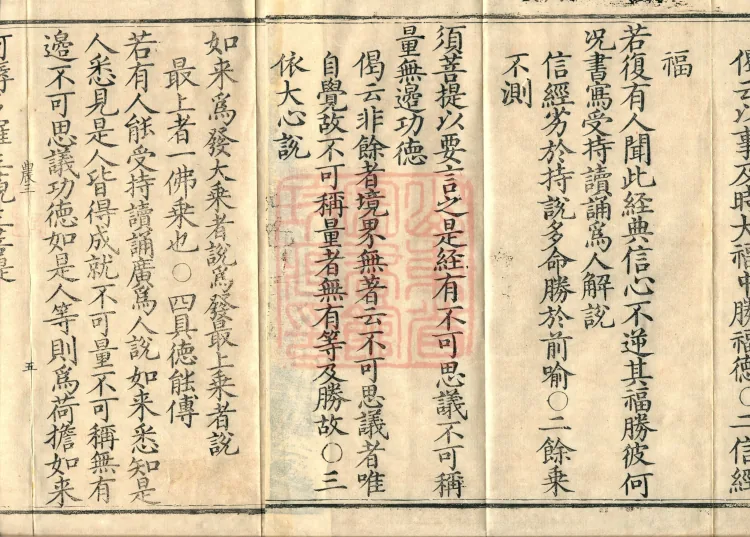 偈云以事及時大福中勝福德〇二信經
福
若復有人聞此經典信心不逆其福勝彼何
况書寫受持讀誦爲人解說
信經劣於持說多命勝於前喻〇二餘乘
不測
須菩提以要言之是經有不可思議不可稱
量無邊功德
偈云非餘者境界無著云不可思議者唯
自覺故不可稱量者無有等及勝故〇三
依大心說
如来爲發大乘者說爲發最上乘者說
最上者一佛乘也〇四具德能傳
若有人能受持讀誦廣爲人說如来悉知是
人悉見是人皆得成就不可量不可稱無有
邊不可思議功德如是人等則爲荷擔如来
農三 五